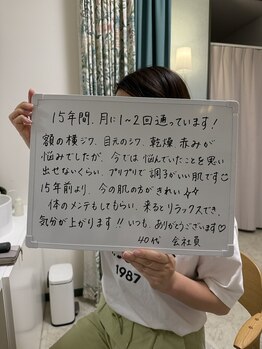 15年間、月に1～2回通っています！
額の横ジワ、目元のシワ、乾燥 赤みが
悩みでしたが、今では悩んでいたことを思い
出せないくらい、プリプリで調子がいい肌です☺
15年前より、今の肌の方がきれい ☆☆
体のメンテもしてもらい、来るとリラックスでき、
気分が上がります!! いつも、ありがとうございます♡
40代 会社員
1987